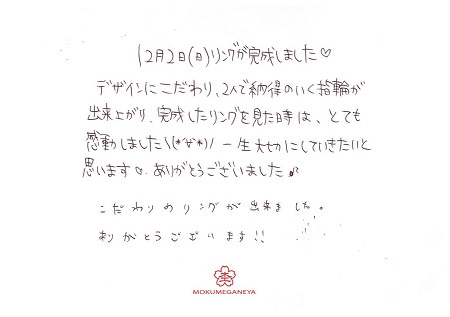 12月2日(日)リングが完成しました♡
デザインにこだわり、2人で納得のいく指輪が
出来上がり、完成したリングを見た時は、とても
感動しました\(*'∀'*)/ 一生大切にしていきたいと
思います♡。ありがとうございました♪
こだわりのリングが出来ました。
ありがとうございます!!
MOKUMEGANEYA